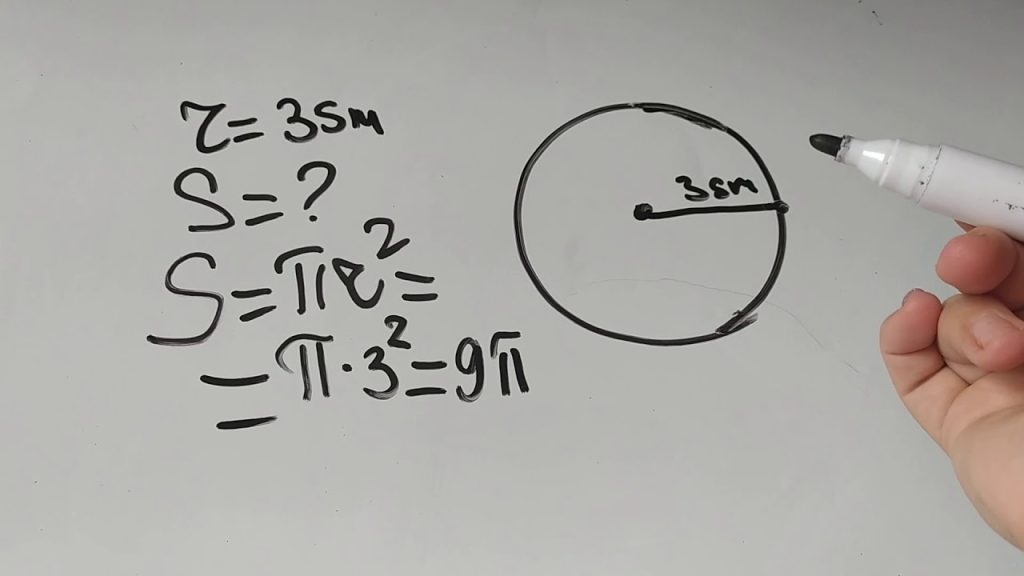 r = 3 sm
S = ?
S = πr² =
= π · 3² = 9π
3 sm